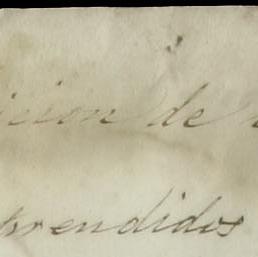 icion de
prendidos